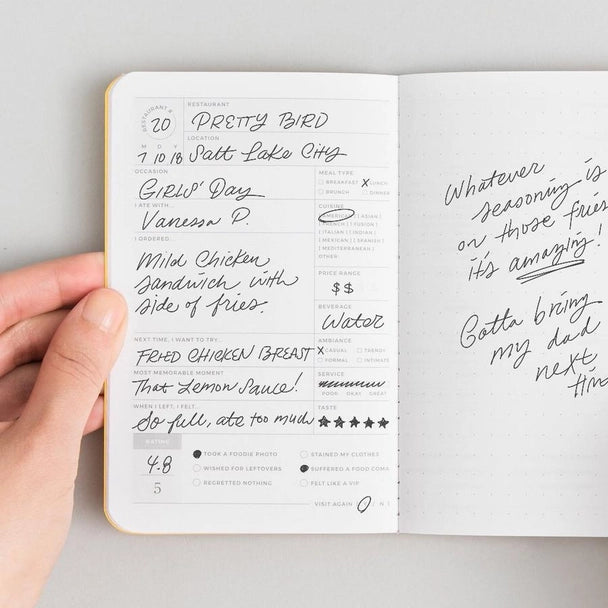 RESTAURANT #
20
RESTAURANT
PRETTY BIRD
LOCATION
M D Y
7 10 18 Salt Lake City
OCCASION
Girls' Day
I ATE WITH...
Vanessa P.
I ORDERED...
Mild Chicken
Sandwich with
side of fries.
MEAL TYPE
BREAKFAST X LUNCH
BRUNCH DINNER
CUISINE
AMERICAN | ASIAN |
FRENCH | FUSION |
ITALIAN | INDIAN |
MEXICAN | SPANISH |
MEDITERRANEAN |
OTHER
PRICE RANGE
$$
BEVERAGE
Water
NEXT TIME, I WANT TO TRY...
FRIED CHICKEN BREAST
AMBIANCE
X CASUAL TRENDY
FORMAL INTIMATE
MOST MEMORABLE MOMENT
That Lemon Sauce!
SERVICE
POOR OKAY GREAT
WHEN I LEFT, I FELT...
So full, ate too much
TASTE
RATING
4.8
5
TOOK A FOODIE PHOTO
WISHED FOR LEFTOVERS
REGRETTED NOTHING
STAINED MY CLOTHES
SUFFERED A FOOD COMA
FELT LIKE A VIP
VISIT AGAIN Y | N
Whatever
seasoning is
on those fries
it's amazing!
Gotta bring
my dad
next